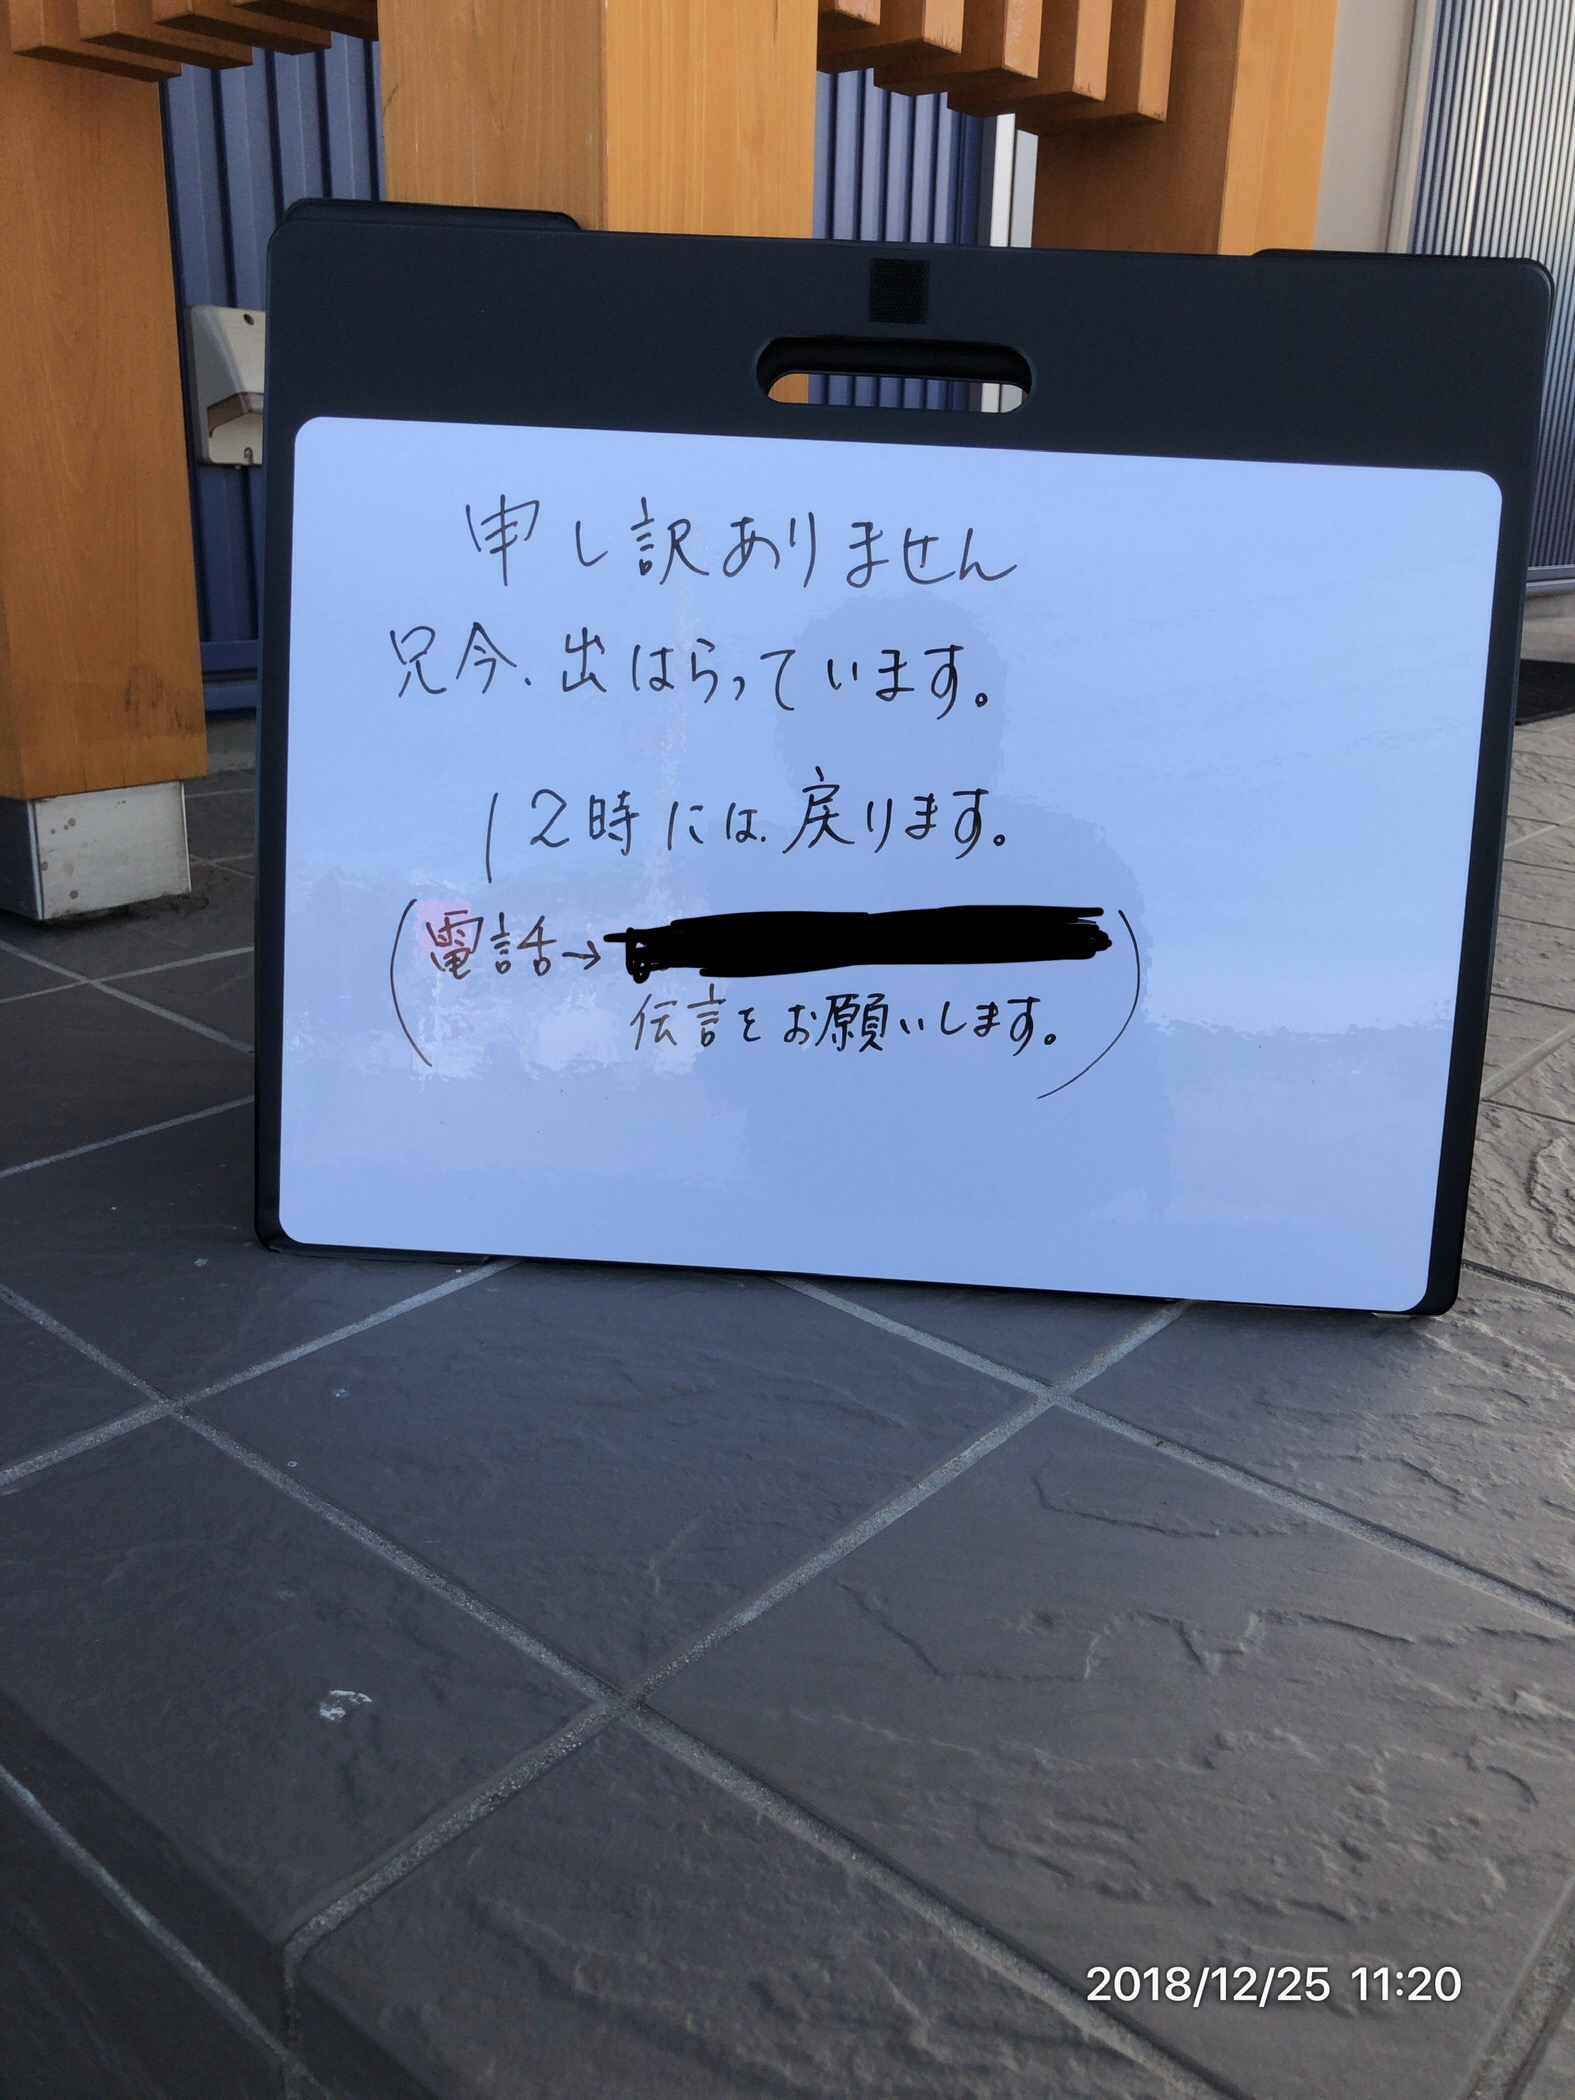 申し訳ありません
只今、出はらっています。
12時には戻ります。
(電話→
伝言をお願いします。)
2018/12/25 11:20